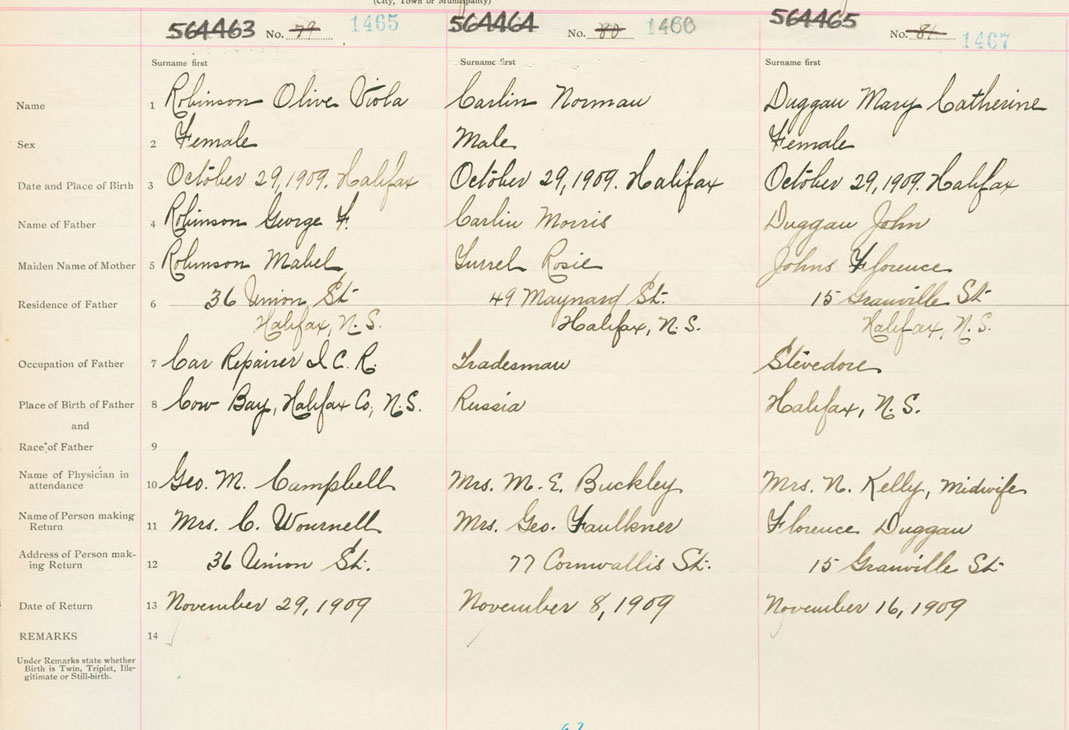 (City, Town or Municipality)
564463 No. 79 1465 564464 No. 80 1466 564465 No. 81 1467
Surname first Surname first Surname first
Name 1 Robinson Olive Viola Carlin Norman Duggan Mary Catherine
Sex 2 Female Male Female
Date and Place of Birth 3 October 29, 1909. Halifax October 29, 1909. Halifax October 29, 1909. Halifax
Name of Father 4 Robinson George F. Carlin Morris Duggan John
Maiden Name of Mother 5 Robinson Mabel Rosie Johns Florence
Residence of Father 6 36 Union St. 49 Maynard St. 15 Granville St.
Halifax, N.S. Halifax, N.S. Halifax, N.S.
Occupation of Father 7 Car Repairer I.C.R. Tradesman Stevedore
Place of Birth of Father 8 Cow Bay, Halifax Co, N.S. Russia Halifax, N.S.
and
Race of Father 9
Name of Physician in
attendance 10 Geo. M. Campbell Mrs. M. E. Buckley Mrs. N. Kelly, Midwife
Name of Person making
Return 11 Mrs. C. Wournell Mrs. Geo. Faulkner Florence Duggan
Address of Person mak-
ing Return 12 36 Union St. 77 Cornwallis St. 15 Granville St.
Date of Return 13 November 29, 1909 November 8, 1909 November 16, 1909
REMARKS 14
Under Remarks state whether
Birth is Twin, Triplet, Ille-
gitimate or Still-birth.